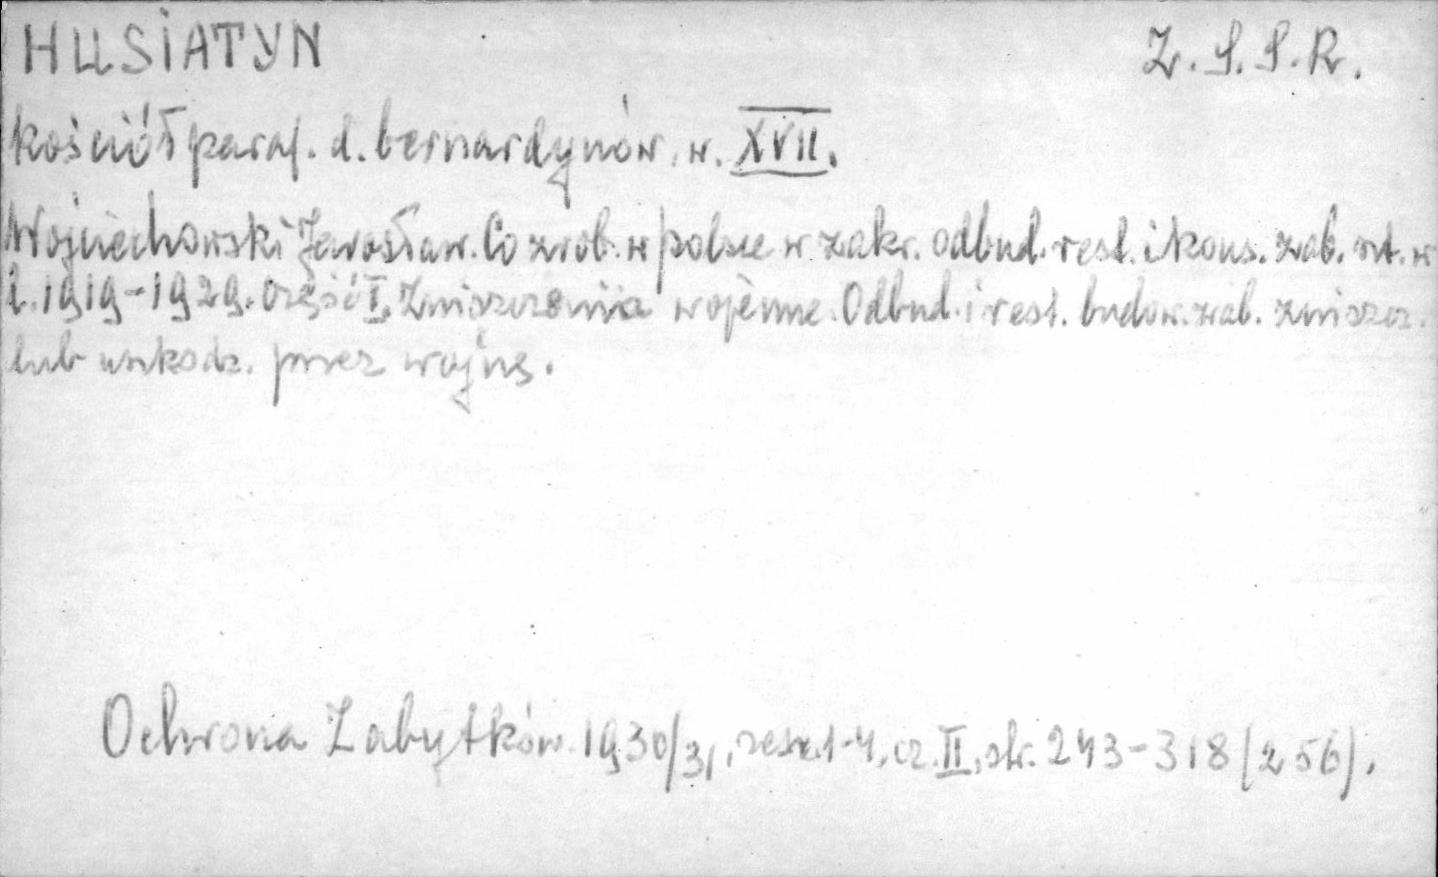 HUSIATYN Z.S.S.R.
Kościół paraf. d. bernardynów. w. XVII.
Wojciechowski Jarosław. Co zrob. w Polsce w zakr. odbud. rest. i kons. zab. szt. w
l. 1919-1929. Część I. Zniszczenia wojenne. Odbud. i rest. budow. zab. zniszcz.
lub uszkodz. przez wojnę.
Ochrona Zabytków. 1930/31, zesz. 1-4, cz. II, str. 243-318 (256).